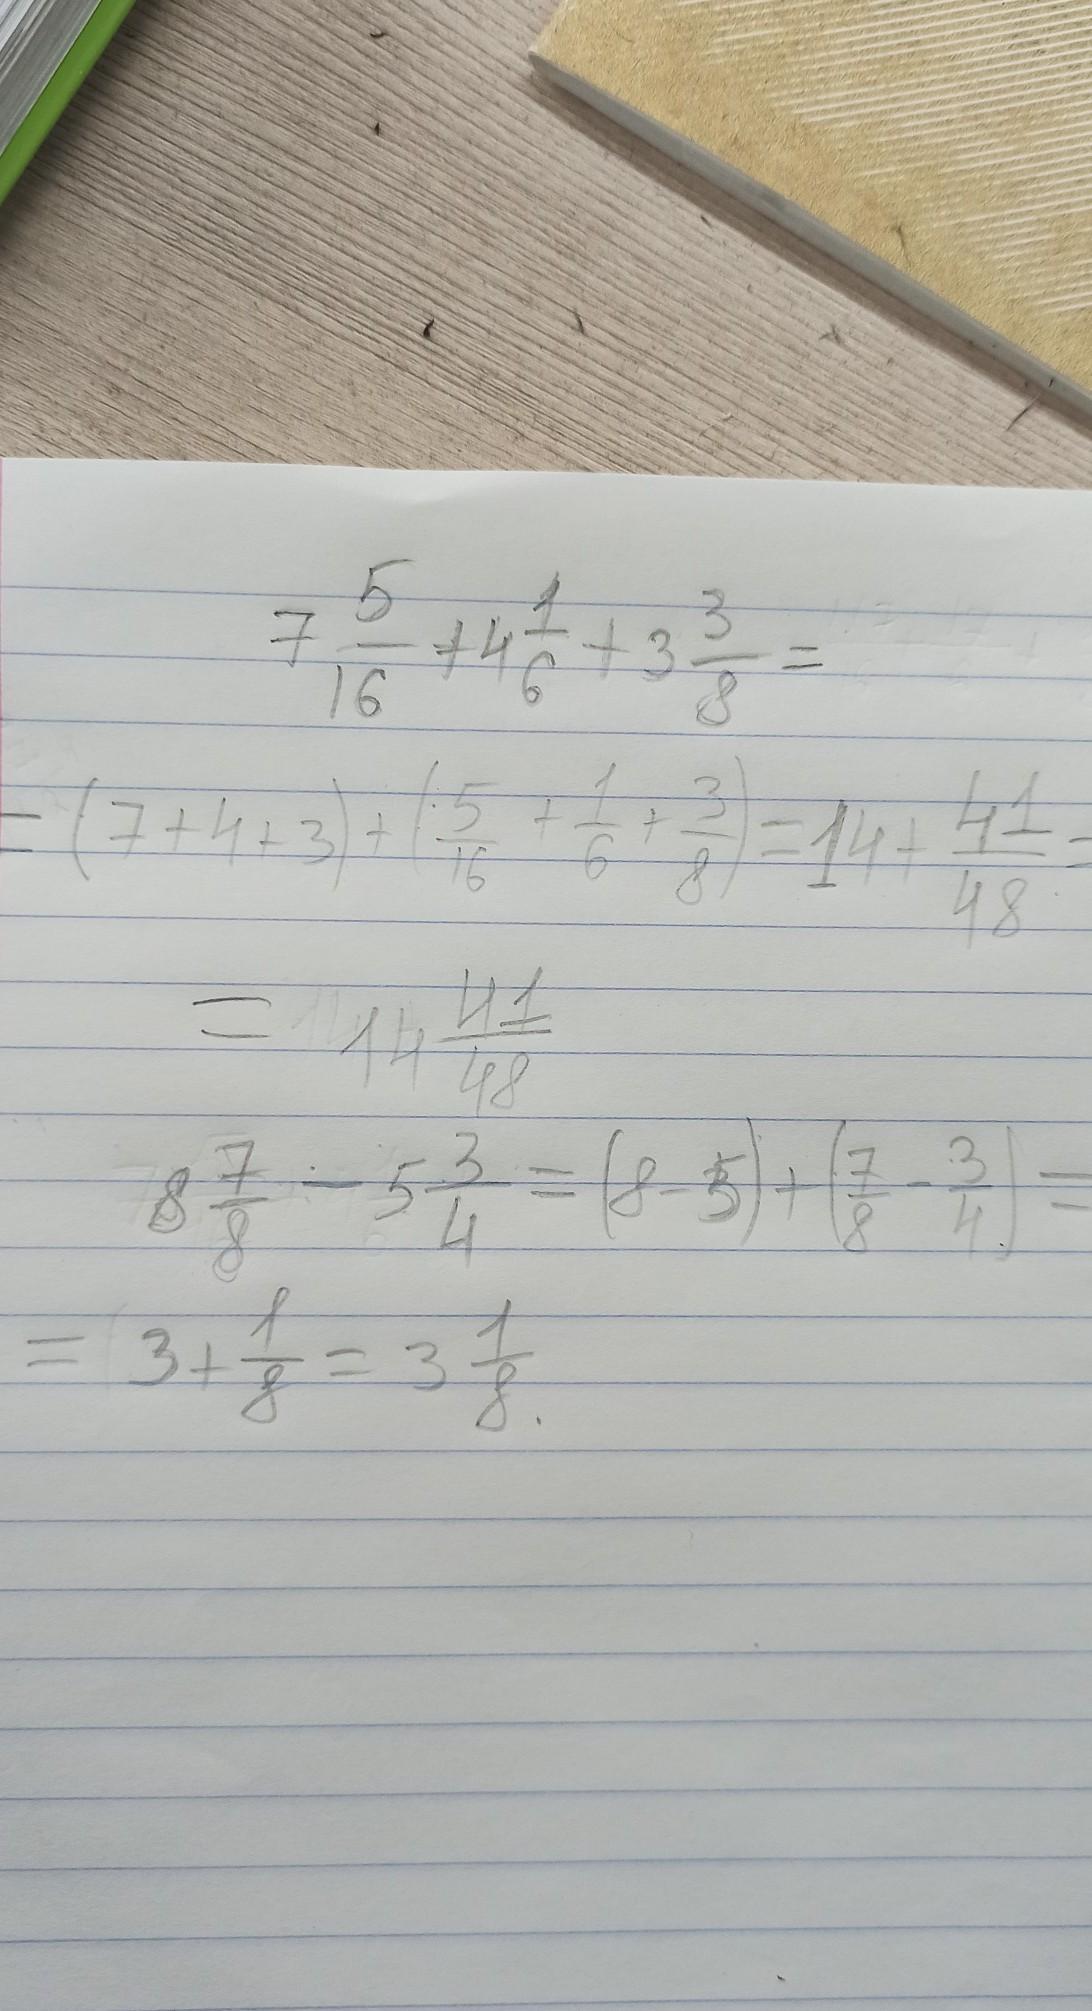 7 5/16 + 4 1/6 + 3 3/8 =
= (7 + 4 + 3) + (5/16 + 1/6 + 3/8) = 14 + 41/48 =
= 14 41/48
8 7/8 - 5 3/4 = (8 - 5) + (7/8 - 3/4) =
= 3 + 1/8 = 3 1/8.